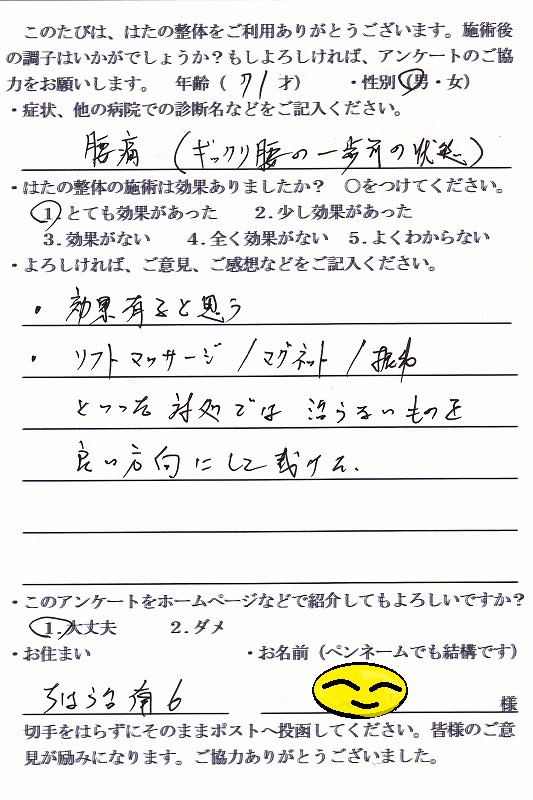 このたびは、はたの整体をご利用ありがとうございます。施術後
の調子はいかがでしょうか？もしよろしければ、アンケートのご協
力をお願いします。　年齢（ 71 才）　・性別（男・女）
・症状、他の病院での診断名などをご記入ください。
腰痛（ギックリ腰の一歩前の状態）
・はたの整体の施術は効果ありましたか？　○をつけてください。
1.とても効果があった　2.少し効果があった
3.効果がない　4.全く効果がない　5.よくわからない
・よろしければ、ご意見、ご感想などをご記入ください。
・効果有ると思う
・ソフトマッサージ/マグネット/
といった対処では治らないものを
良い方向にして戴けた.
・このアンケートをホームページなどで紹介してもよろしいですか？
1.大丈夫　2.ダメ
・お住まい　・お名前（ペンネームでも結構です）
南6　様
切手をはらずにそのままポストへ投函してください。皆様のご意
見が励みになります。ご協力ありがとうございました。